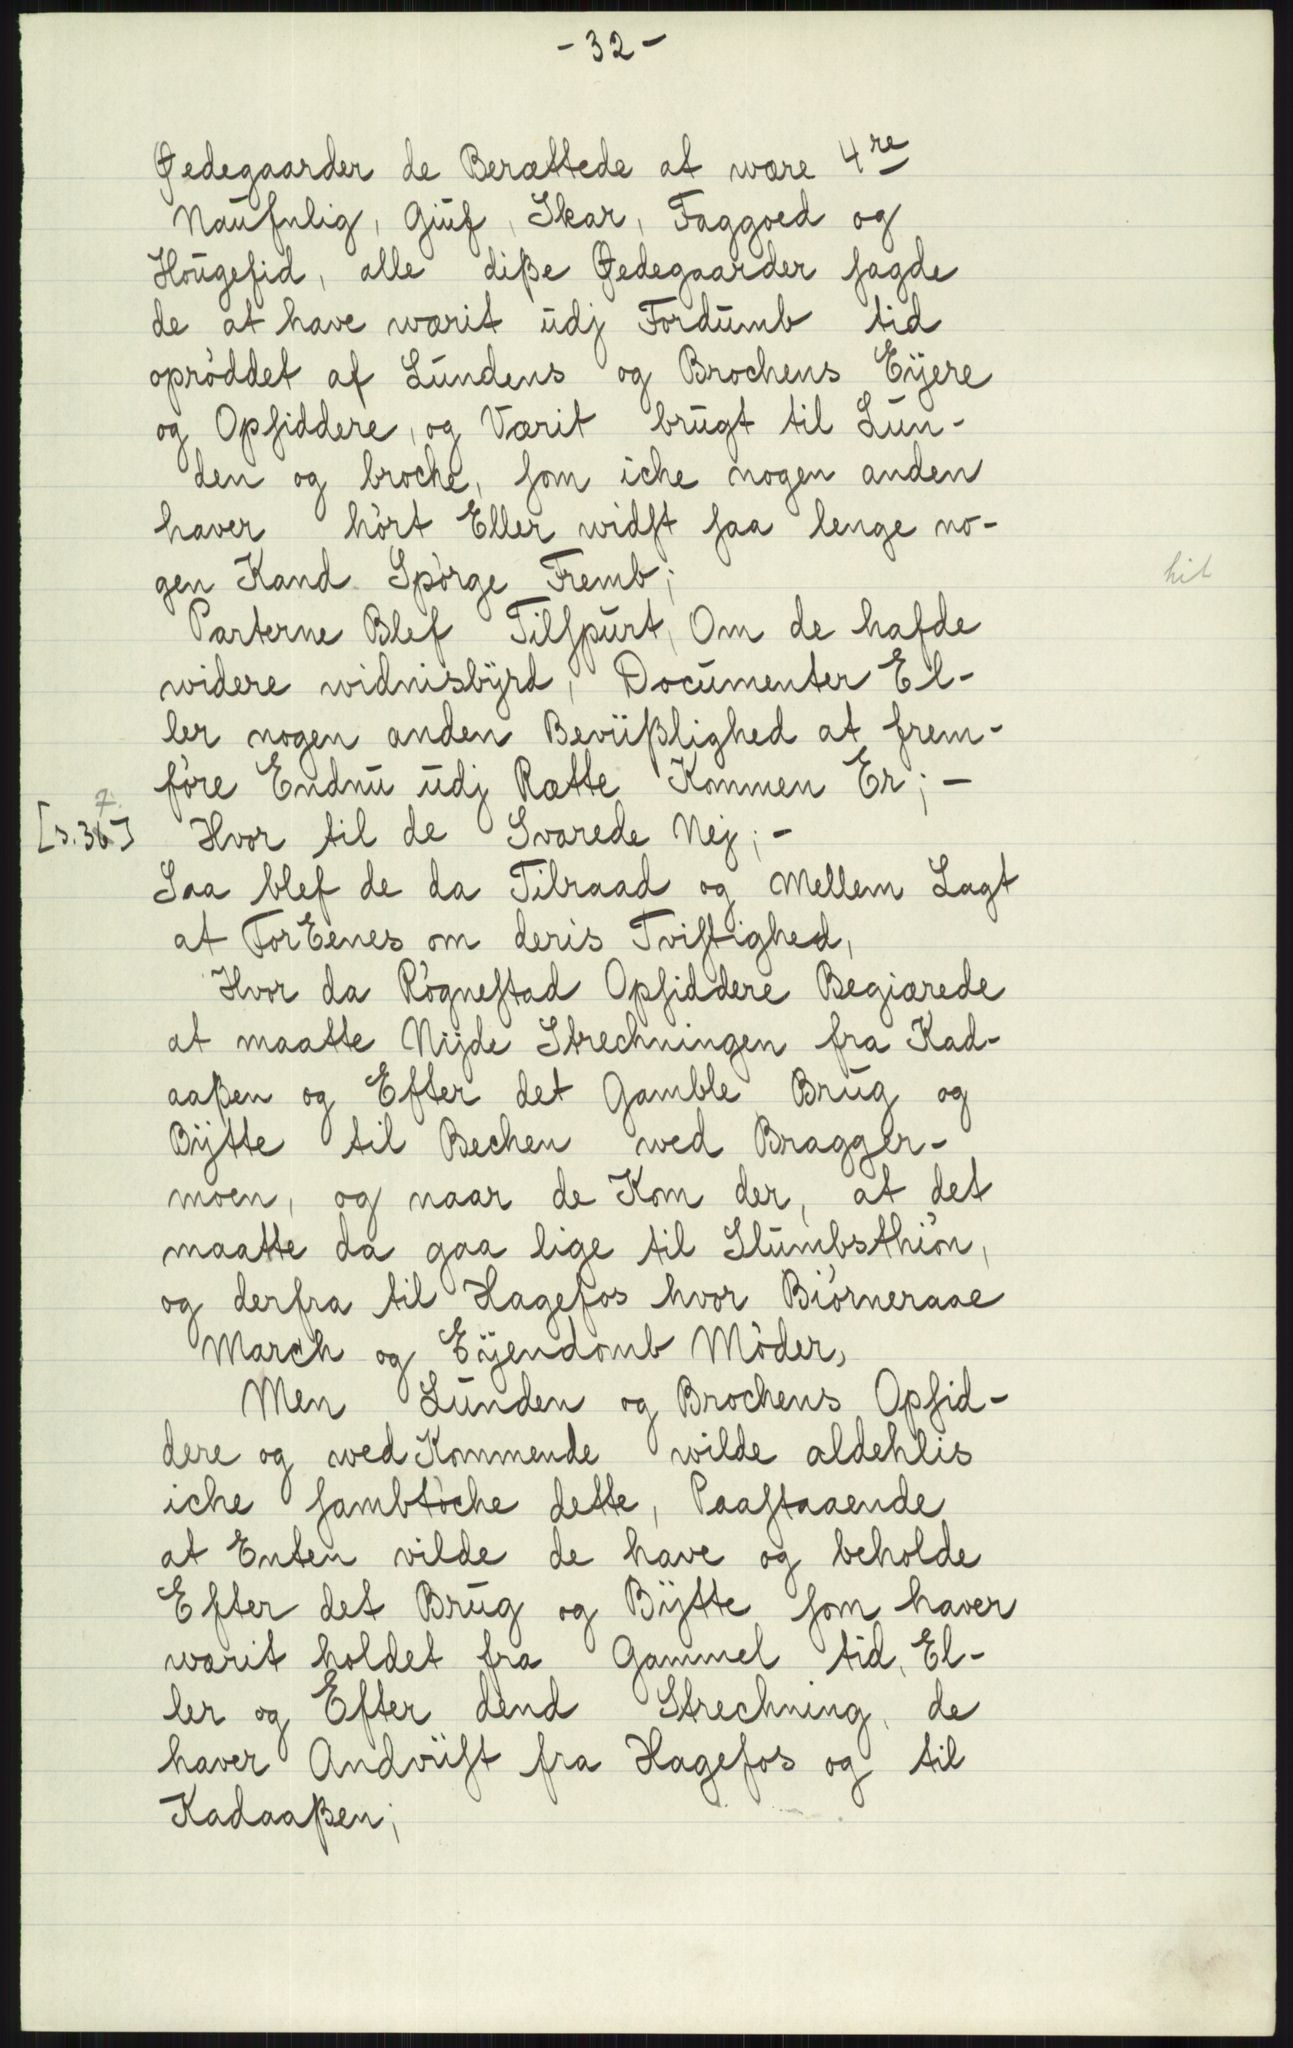 - 32 -
Ødegaarder de Berættede at være 4re
Naufnlig, Giuf, Skar, Faggoed og
Hougesid, alle diße Ødegaarder sagde
de at have værit udj Fordumb tid
oprøddet af Lundens og Brochens Eÿere
og Opsiddere, og Værit brugt til Lun-
den og broche, som iche nogen anden
haver hørt Eller widst saa lenge no-
gen Kand Spørge Fremb; hit
Parterne Blef Tilspurt, Om de hafde
widere widnisbÿrd, Documenter El-
ler nogen anden Beviißlighed at frem-
føre Endnu udj Rætte Kommen Er; -
[s. 367] Hvor til de Svarede Nej; -
Saa blef de da Tilraad og Mellem Lagt
at ForEenes om deris Tvistighed,
Hvor da Røgnestad Opsiddere Begiærede
at maatte Nijde Strechningen fra Kad-
aaßen og Efter det Gamble Brug og
Bÿtte til Bechen wed Bragger-
moen, og naar de Kom der, at det
maatte da gaa lige til Slumbsthiøn,
og derfra til Hagefos hvor Biørneraae
March og Eÿendomb Møder,
Men Lunden og Brochens Opsid-
dere og wedKommende wilde aldehlis
iche sambtøche dette, Paastaaende
at Enten vilde de have og beholde
Efter det Brug og Bÿtte som haver
wærit holdet fra Gammel tid, El-
ler og Efter dend Strechning, de
haver Andviist fra Hagefos og til
Kadaaßen;